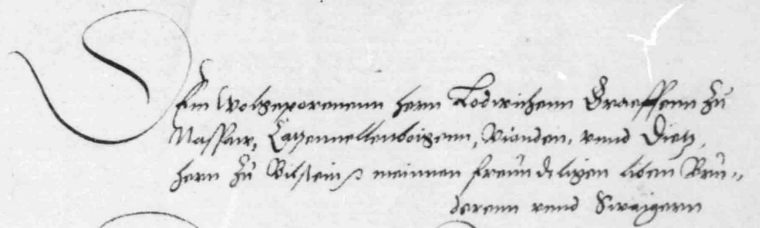 Dem Wolgeporenenn hern Lodwichenn Graeffenn zu
Nassaw, Catzennellenboigenn, Vianden, vnnd Dietz,
hern zu Bilstein, meinnen freundtligen lieben Bru„
derenn vnnd Swaigern